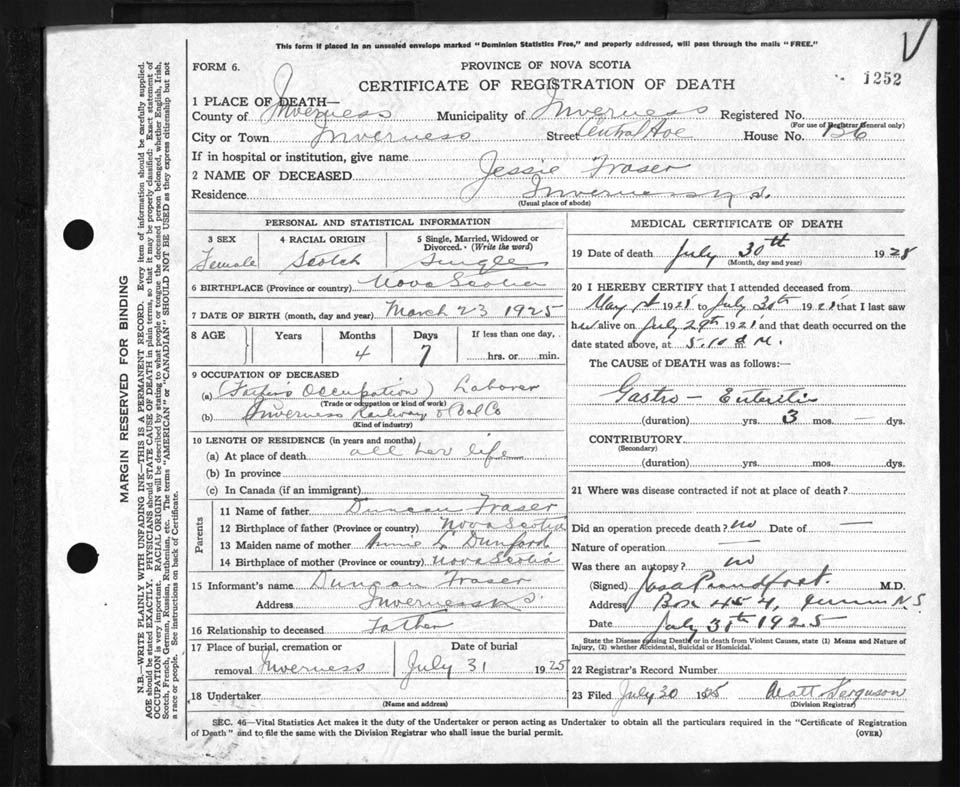 This form if placed in an unsealed envelope marked "Dominion Statistics Free," and properly addressed, will pass through the mails "FREE."
FORM 6. PROVINCE OF NOVA SCOTIA
CERTIFICATE OF REGISTRATION OF DEATH 1252
1 PLACE OF DEATH—
County of Inverness Municipality of Inverness Registered No.
(For use of Registrar General only)
City or Town Inverness Street Central Ave House No. 136
If in hospital or institution, give name
2 NAME OF DECEASED Jessie Fraser
Residence Inverness N.S.
(Usual place of abode)
PERSONAL AND STATISTICAL INFORMATION
3 SEX 4 RACIAL ORIGIN 5 Single, Married, Widowed or Divorced. (Write the word)
Female Scotch Single
6 BIRTHPLACE (Province or country) Nova Scotia
7 DATE OF BIRTH (month, day and year) March 23 1925
8 AGE Years Months Days If less than one day,
4 7 hrs. or min.
9 OCCUPATION OF DECEASED
(a) (Father's Occupation) Laborer
(Trade or occupation or kind of work)
(b) Inverness Railway & Coal Co
(Kind of industry)
10 LENGTH OF RESIDENCE (in years and months)
(a) At place of death all her life
(b) In province
(c) In Canada (if an immigrant)
Parents
11 Name of father Duncan Fraser
12 Birthplace of father (Province or country) Nova Scotia
13 Maiden name of mother Annie L Dunford
14 Birthplace of mother (Province or country) Nova Scotia
15 Informant's name Duncan Fraser
Address Inverness N.S.
16 Relationship to deceased Father
17 Place of burial, cremation or Date of burial
removal Inverness July 31 1925
18 Undertaker
(Name and address)
MEDICAL CERTIFICATE OF DEATH
19 Date of death July 30th 1925
(Month, day and year)
20 I HEREBY CERTIFY that I attended deceased from
May 192 to July 30th 192 that I last saw
her alive on July 29th 192 and that death occurred on the
date stated above, at 5.10 M.
The CAUSE of DEATH was as follows:—
Gastro-Enteritis
(duration) yrs. 3 mos. — dys.
CONTRIBUTORY
(Secondary)
(duration) yrs. mos. dys.
21 Where was disease contracted if not at place of death?
Did an operation precede death? no Date of —
Nature of operation —
Was there an autopsy? no
(Signed) M.D.
Address Box 454, N.S.
Date July 31st 1925
State the Disease causing Death, or in death from Violent Causes, state (1) Means and Nature of
Injury, (2) whether Accidental, Suicidal or Homicidal.
22 Registrar's Record Number
23 Filed July 30 1925 Matt Ferguson
(Division Registrar)
SEC. 46—Vital Statistics Act makes it the duty of the Undertaker or person acting as Undertaker to obtain all the particulars required in the "Certificate of Registration
of Death" and to file the same with the Division Registrar who shall issue the burial permit. (OVER)
MARGIN RESERVED FOR BINDING
N.B.—WRITE PLAINLY WITH UNFADING INK—THIS IS A PERMANENT RECORD. Every item of information should be carefully supplied.
AGE should be stated EXACTLY. PHYSICIANS should STATE CAUSE OF DEATH in plain terms, so that it may be properly classified: Exact statement of
OCCUPATION is very important. RACIAL ORIGIN will be described by stating to what people or tongue the deceased person belonged, whether English, Irish,
Scotch, French, German, Russian, Ruthenian, etc. The terms "AMERICAN" or "CANADIAN" SHOULD NOT BE USED as they express citizenship but not
a race or people. See instructions on back of Certificate.